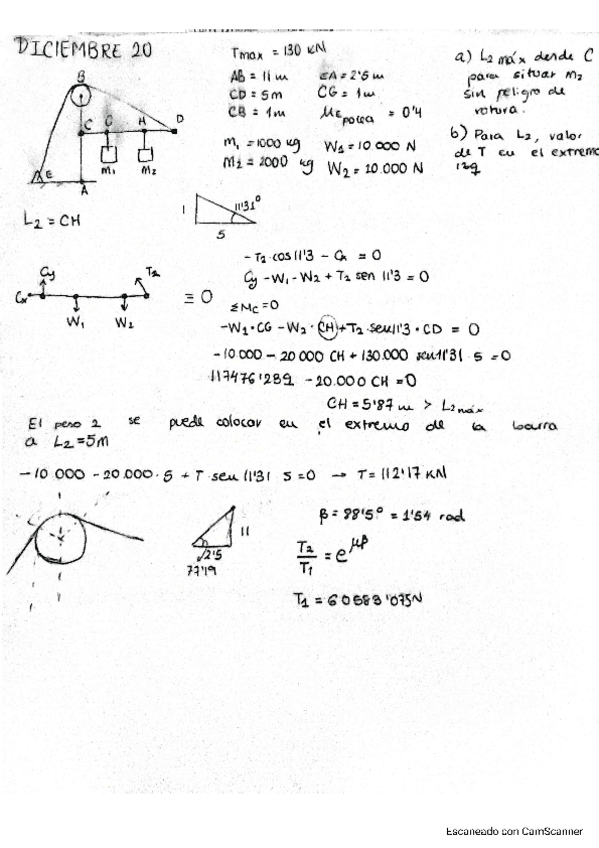 DICIEMBRE 20
Tmax = 130 KN
AB = 11 m EA = 2'5 m
CD = 5 m CG = 1 m
CB = 1 m μE polea = 0'4
m1 = 1000 kg W1 = 10 000 N
m2 = 2000 kg W2 = 20.000 N
a) L2 máx desde C
para situar m2
sin peligro de
rotura.
b) Para L2, valor
de T en el extremo
izq
B
C G H D
M1 M2
E
A
L2 = CH
1 11'31°
5
Cy T2
Cx ≡ 0
W1 W2
- T2 cos 11'3 - Cx = 0
Cy - W1 - W2 + T2 sen 11'3 = 0
ΣMc = 0
-W1 · CG - W2 · CH + T2 · sen 11'3 · CD = 0
- 10.000 - 20 000 CH + 130.000 sen 11'31 · 5 = 0
117476'289 - 20.000 CH = 0
CH = 5'87 m > L2 máx
El peso 2 se puede colocar en el extremo de la barra
a L2 = 5m
- 10 000 - 20.000 · 5 + T sen 11'31 5 = 0 → T = 112'17 KN
11
2'5
77'19
β = 88'5° = 1'54 rad
T2/T1 = e^μβ
T1 = 60583'075N
Escaneado con CamScanner